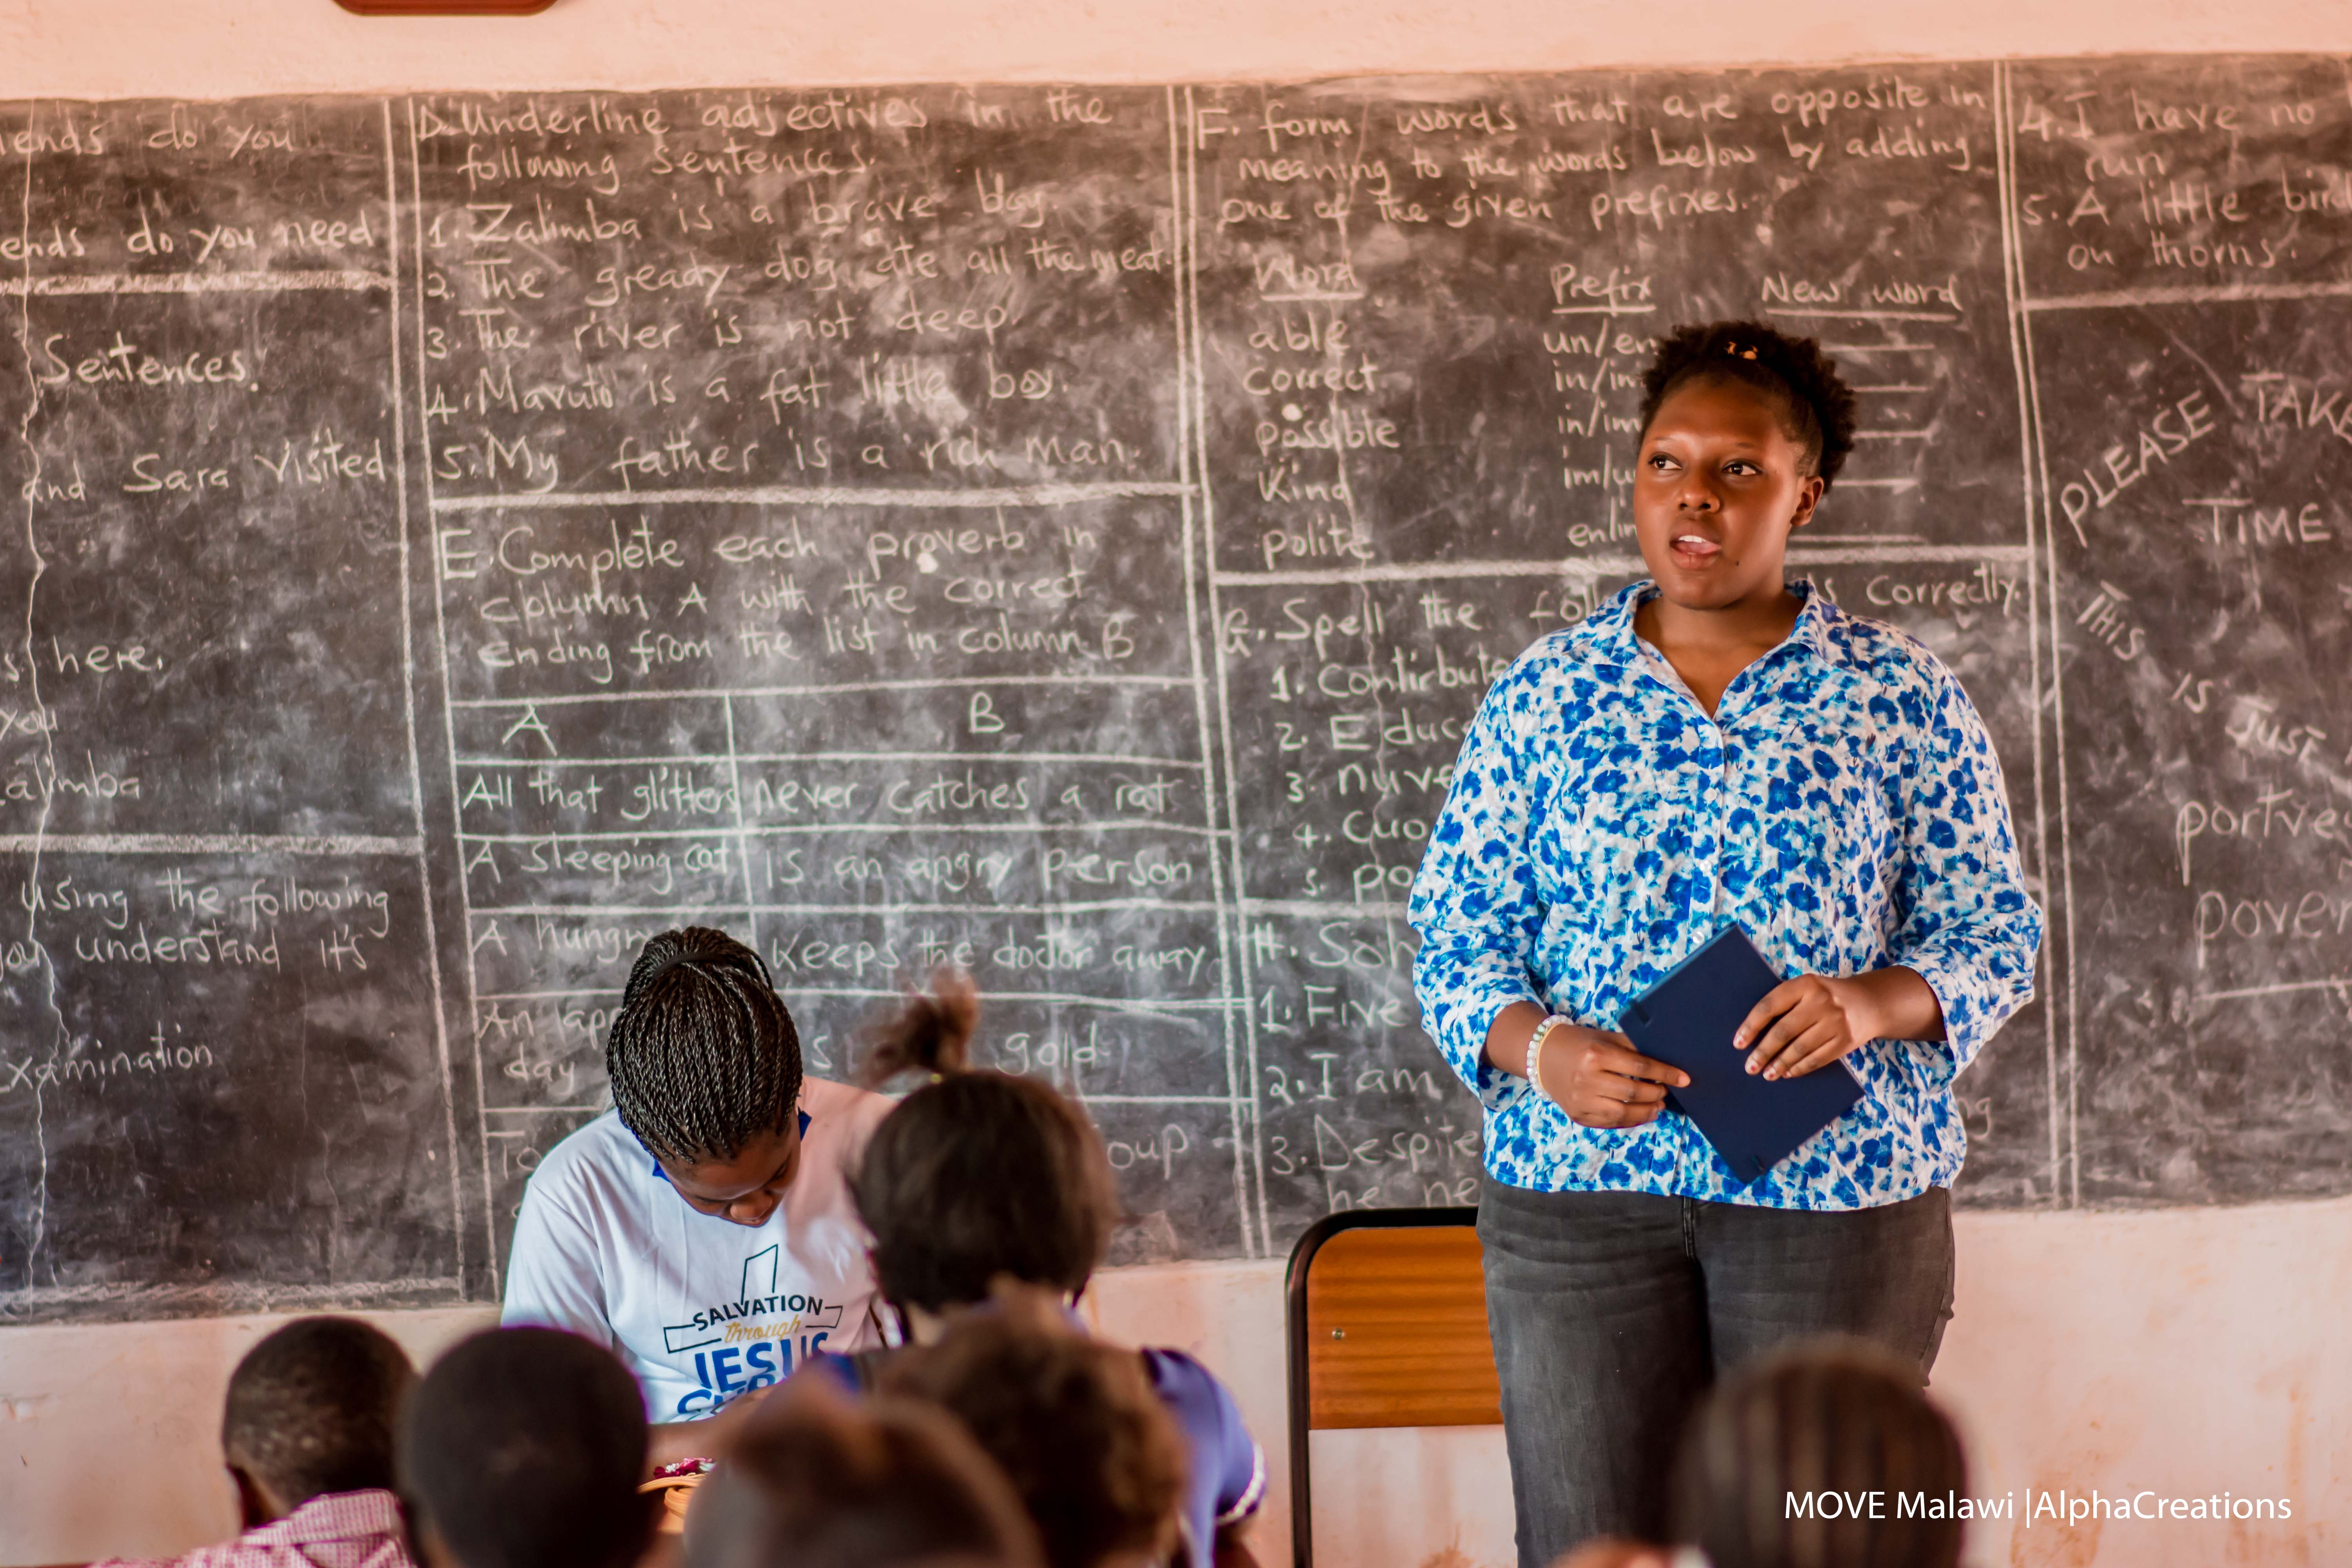 iends do you
ends do you need
Sentences.
and Sara visited
s here.
you
alimba
using the following
you understand it's
xamination
D. Underline adjectives in the
following sentences.
1. Zalimba is a brave boy.
2. The gready dog ate all the meat.
3. The river is not deep.
4. Maruto is a fat little boy.
5. My father is a rich man.
E. Complete each proverb in
column A with the correct
ending from the list in column B
A B
All that glitters never catches a rat
A sleeping cat is an angry person
A hungry keeps the doctor away
An app s gold
day
To oup
F. form words that are opposite in
meaning to the words below by adding
one of the given prefixes.
Word Prefix New word
able un/en
correct in/im
possible in/im
kind im/u
polite en/in
G. Spell the foll s correctly.
1. Contirbut
2. Educ
3. nuve
4. cuo
5. po
H. Sol
1. Five
2. I am
3. Despite ng
he ne
4. I have no
run
5. A little bird
on thorns.
PLEASE TAKE
TIME
THIS IS JUST
portve
pover
SALVATION
through
JESUS
MOVE Malawi |AlphaCreations